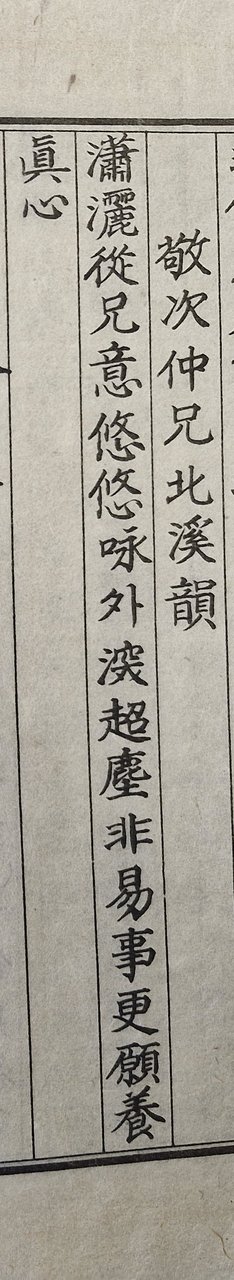 敬次仲兄北溪韻
瀟灑從兄意悠悠咏外深超塵非易事更願養
眞心